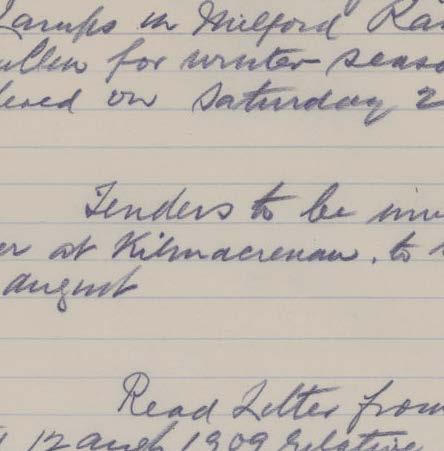 Lamps in Milford Ra
ullen for winter seaso
dered on Saturday 2
Tenders to be inv
er at Kilmacrenan, to
August
Read Letter from
12 Augt 1909 relative